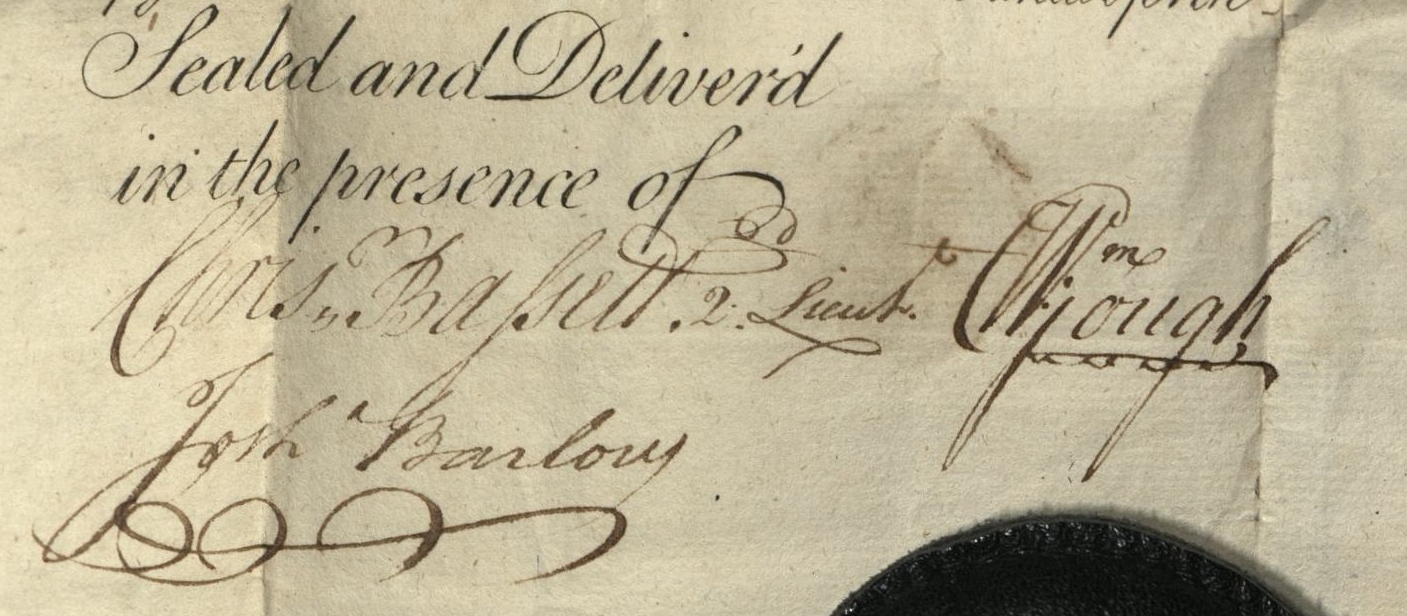 Sealed and Deliver'd
in the presence of
Chris. Bassett 2d. Lieut. Wm
Josha Barlow